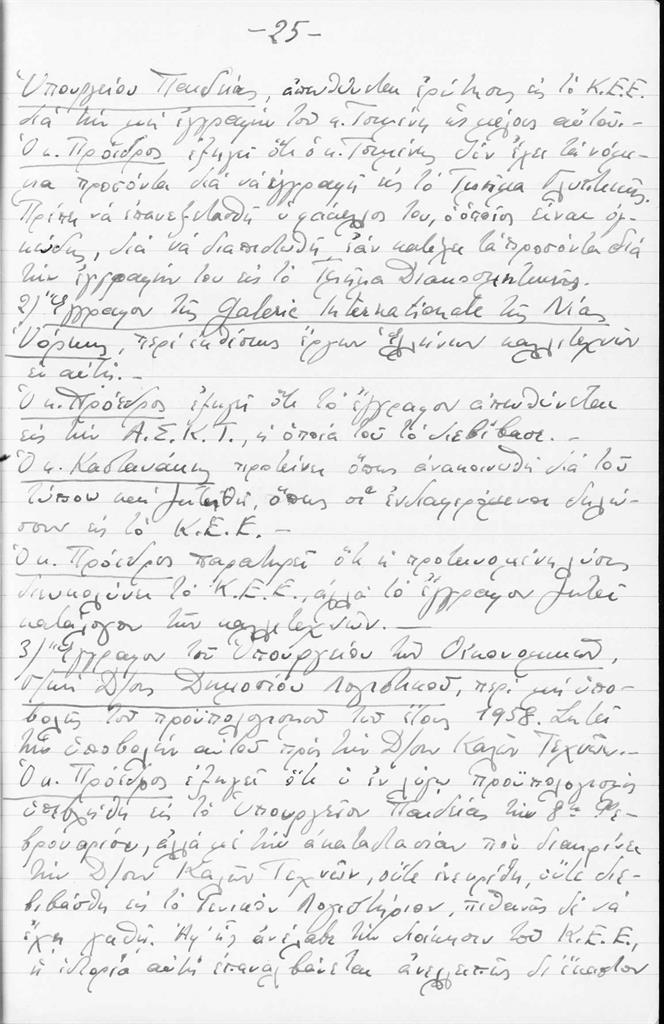 -25-
Ὑπουργείου Παιδείας, ἀπευθύνεται ἐρώτησις εἰς τὸ Κ.Ε.Ε.
διὰ τὴν μὴ ἐγγραφὴν τοῦ κ. Τσιμένη ὡς μέλους αὐτοῦ.-
Ὁ κ. Πρόεδρος ἐξηγεῖ ὅτι ὁ κ. Τσιμένης δὲν ἔχει τὰ νόμι-
μα προσόντα διὰ νὰ ἐγγραφῆ εἰς τὸ Τμῆμα Γλυπτικῆς.
Πρέπει νὰ ἐπανεξετασθῆ ὁ φάκελλος του, ὁ ὁποῖος εἶναι ὀγ-
κώδης, διὰ νὰ διαπιστωθῆ ἐὰν κατέχει τὰ προσόντα διὰ
τὴν ἐγγραφήν του εἰς τὸ Τμῆμα Διακοσμητικῆς.
2) Ἔγγραφον τῆς Galerie Internationale τῆς Νέας
Ὑόρκης, περὶ ἐκθέσεως ἔργων Ἑλλήνων καλλιτεχνῶν
ἐν αὐτῇ.-
Ὁ κ. Πρόεδρος ἐξηγεῖ ὅτι τὸ ἔγγραφον ἀπευθύνεται
εἰς τὴν Α.Σ.Κ.Τ., ἡ ὁποία τοῦ τὸ διεβίβασε.-
Ὁ κ. Καστανάκης προτείνει ὅπως ἀνακοινωθῆ διὰ τοῦ
τύπου καὶ ζητηθῆ, ὅπως οἱ ἐνδιαφερόμενοι δηλώ-
σουν εἰς τὸ Κ.Ε.Ε.-
Ὁ κ. Πρόεδρος παρατηρεῖ ὅτι ἡ προτεινομένη λύσις
διευκολύνει τὸ Κ.Ε.Ε., ἀλλὰ τὸ ἔγγραφον ζητεῖ
κατάλογον τῶν καλλιτεχνῶν.-
3) Ἔγγραφον τοῦ Ὑπουργείου τῶν Οἰκονομικῶν,
Δ/σις Δημοσίου Λογιστικοῦ, περὶ μὴ ὑπο-
βολῆς τοῦ προϋπολογισμοῦ τοῦ ἔτους 1958. Ζητεῖ
τὴν ὑποβολὴν αὐτοῦ πρὸς τὴν Δ/σιν Καλῶν Τεχνῶν.-
Ὁ κ. Πρόεδρος ἐξηγεῖ ὅτι ὁ ἐν λόγῳ προϋπολογισμὸς
ὑπεβλήθη εἰς τὸ Ὑπουργεῖον Παιδείας τὴν 8ην Φε-
βρουαρίου, ἀλλὰ μὲ τὴν ἀκαταστασίαν ποὺ διακρίνει
τὴν Δ/σιν Καλῶν Τεχνῶν, οὔτε ἐνεκρίθη, οὔτε διε-
βιβάσθη εἰς τὸ Γενικὸν Λογιστήριον, πιθανῶς δὲ νὰ
ἔχη χαθῆ. Ἀφ' ἧς ἀνέλαβε τὴν διοίκησιν τοῦ Κ.Ε.Ε.,
ἡ ἱστορία αὐτὴ ἐπαναλαμβάνεται ἀνελλιπῶς δι' ἕκαστον